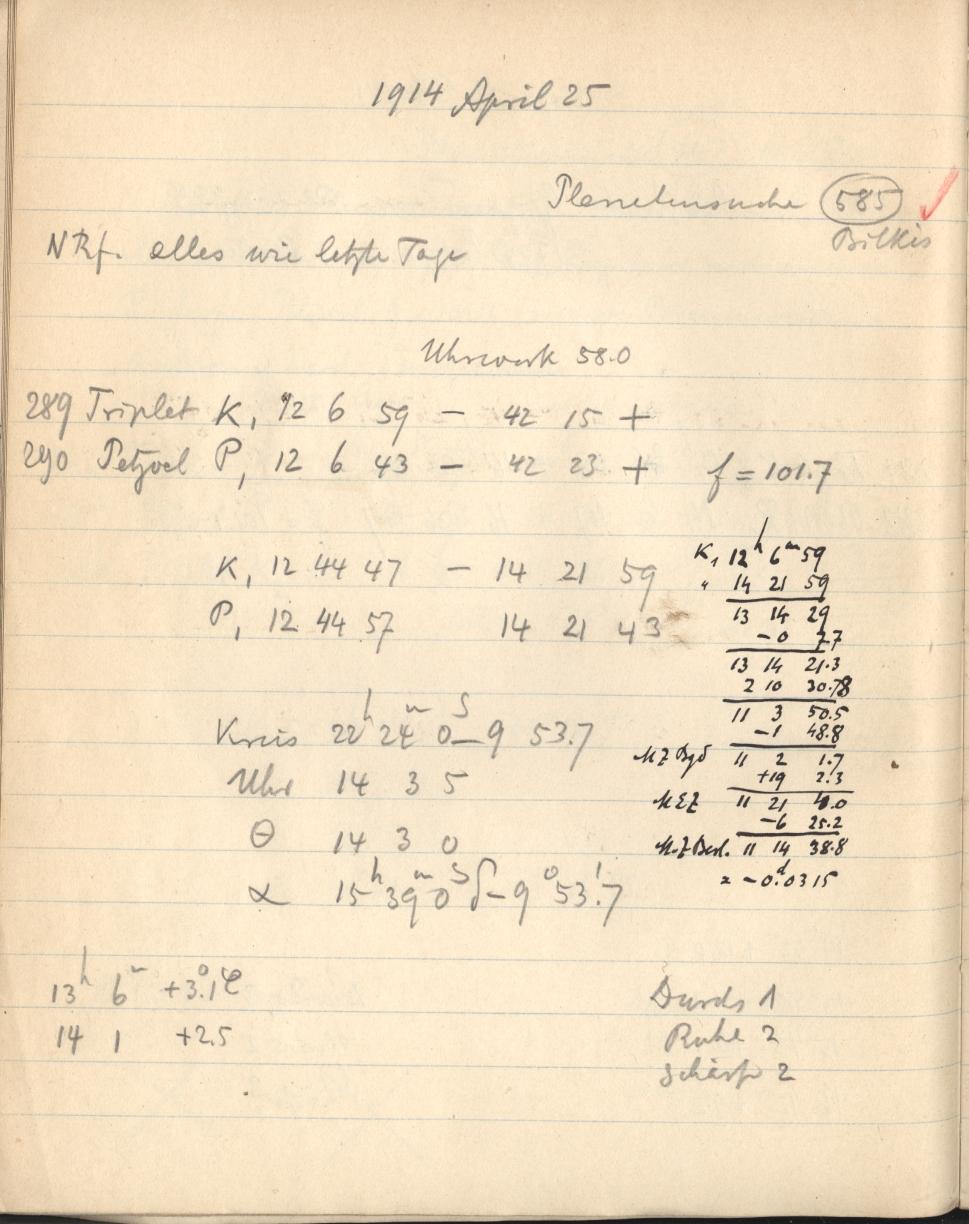 1914 April 25
Planetensuche 585
Bilkis
NRf. alles wie letzte Tage
Uhrwerk 58.0
289 Triplet K, 12 6 59 — 42 15 +
290 Petzval P, 12 6 43 — 42 23 + f = 101.7
K, 12 44 47 — 14 21 59
P, 12 44 57 14 21 43
K, 12h 6m 59
" 14 21 59
13 14 29
-0 7.7
13 14 21.3
2 10 30.78
11 3 50.5
-1 48.8
MZ Bgd 11 2 1.7
+19 2.3
MEZ 11 21 4.0
-6 25.2
M.Z Berl. 11 14 38.8
= -0.d0315
Kreis 22h 24m 0s -9 53.7
Uhr 14 3 5
Θ 14 3 0
α 15h 39m 0s δ -9° 53.'7
13h 6m +3.°1 C
14 1 +2.5
Durchs 1
Ruhe 2
Schärfe 2